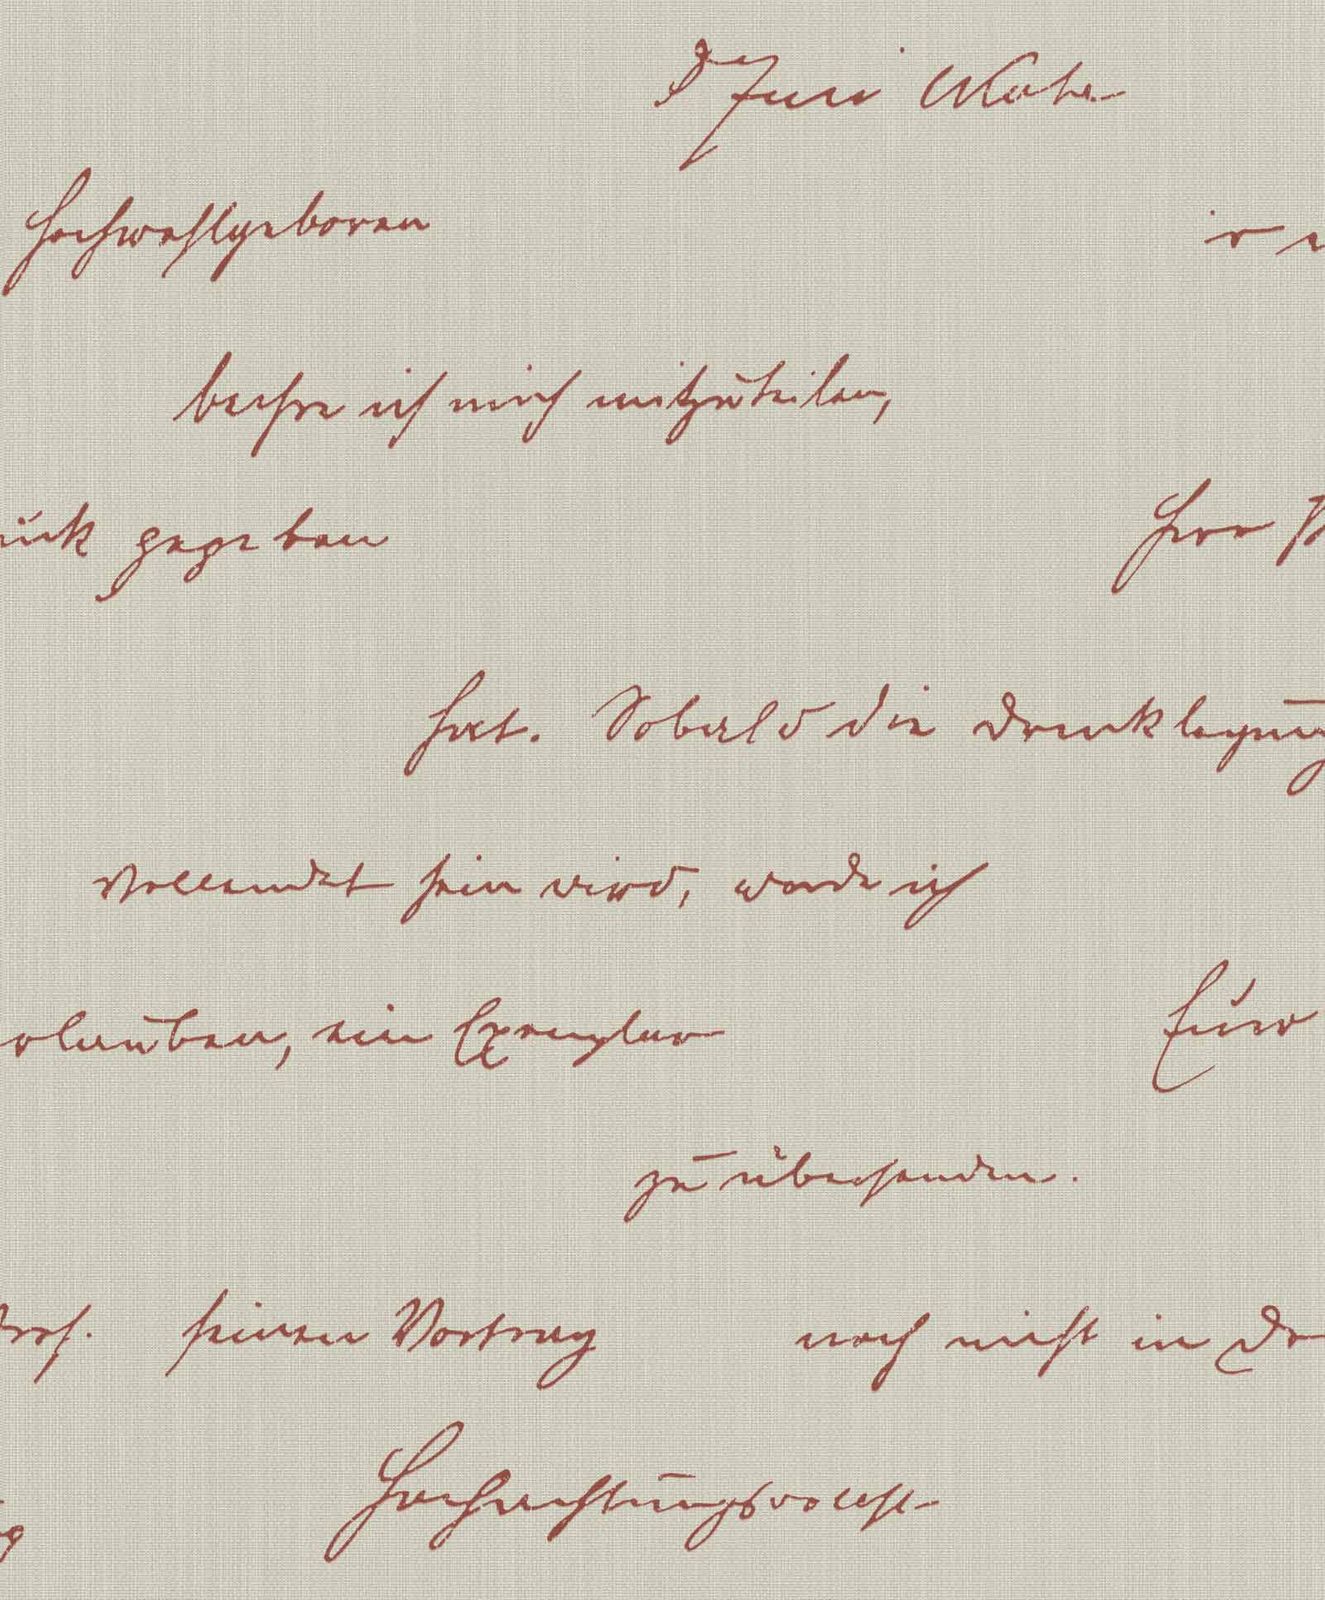 Hochwohlgeboren
beehre ich mich mitzuteilen,
gegeben
Herr
hat. Sobald die Drucklegung
vollendet sein wird, werde ich
erlauben, ein Exemplar
Euer
zu übersenden.
Prof. seinen Vortrag noch nicht in
Hochachtungsvollst